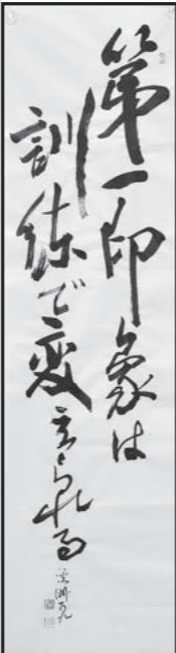 第一印象は
訓練で変えられる